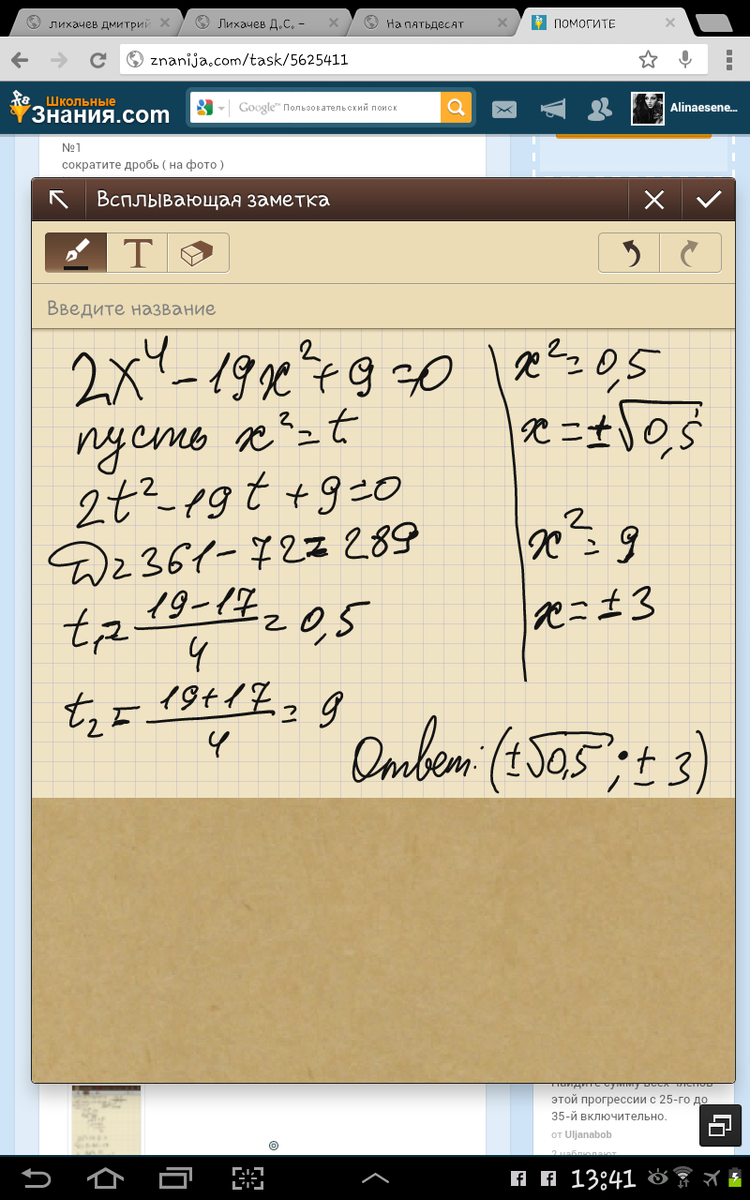 лихачев дмитрий
Лихачев Д.С. –
На пятьдесят
ПОМОГИТЕ
znanija.com/task/5625411
Школьные
Знания.com
Google™ Пользовательский поиск
Alinaesene...
№1
сократите дробь ( на фото )
Всплывающая заметка
T
Введите название
2x⁴ - 19x² + 9 = 0
пусть x² = t
2t² - 19t + 9 = 0
D = 361 - 72 = 289
t₁ = (19 - 17)/4 = 0,5
t₂ = (19 + 17)/4 = 9
x² = 0,5
x = ±√0,5
x² = 9
x = ±3
Ответ: (±√0,5 ; ± 3)
Найдите сумму всех членов
этой прогрессии с 25-го до
35-й включительно.
от Uljanabob
2 наблюдают
13:41